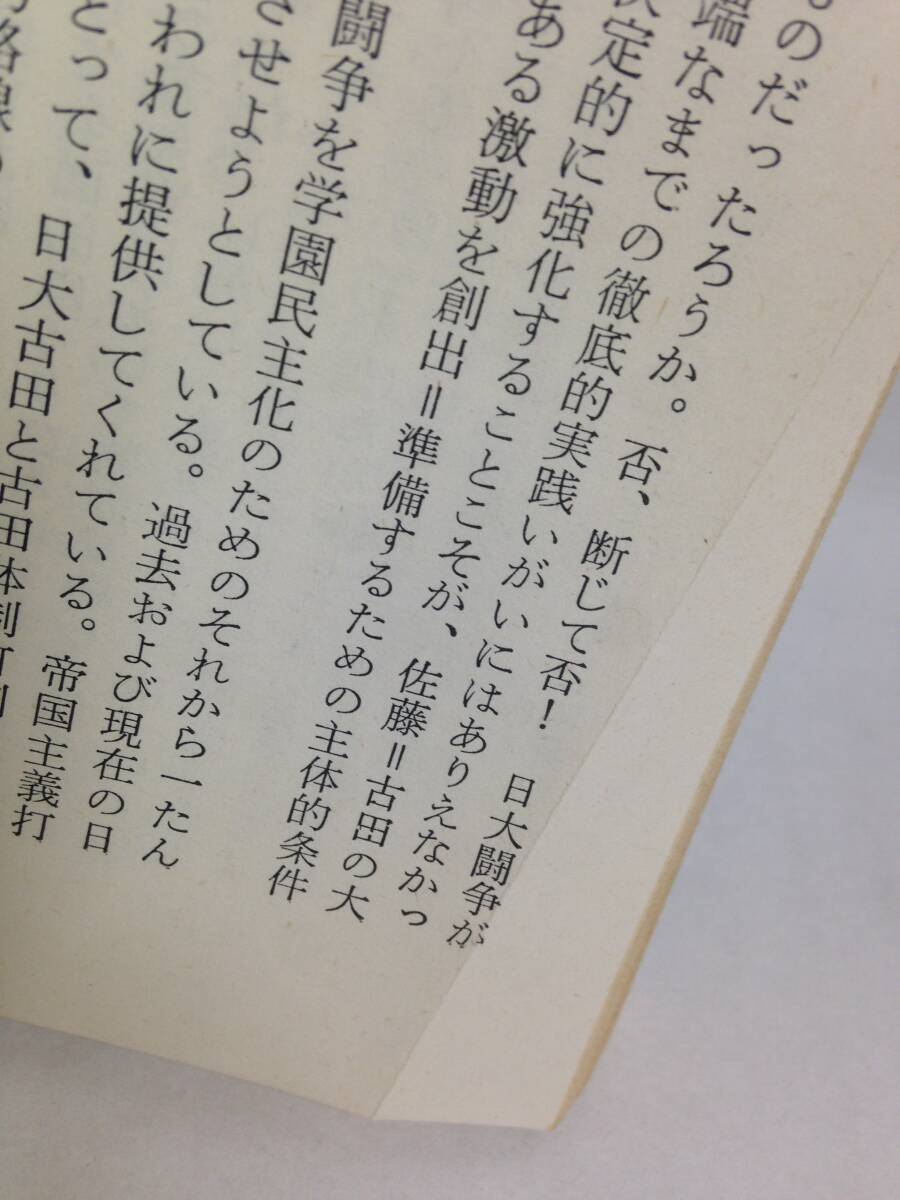 ものだったろうか。否、断じて否！　日大闘争が
端なまでの徹底的実践いがいにはありえなかっ
決定的に強化することこそが、佐藤＝古田の大
ある激動を創出＝準備するための主体的条件
闘争を学園民主化のためのそれから一たん
させようとしている。過去および現在の日
われに提供してくれている。帝国主義打
とって、日大古田と古田体制
路線